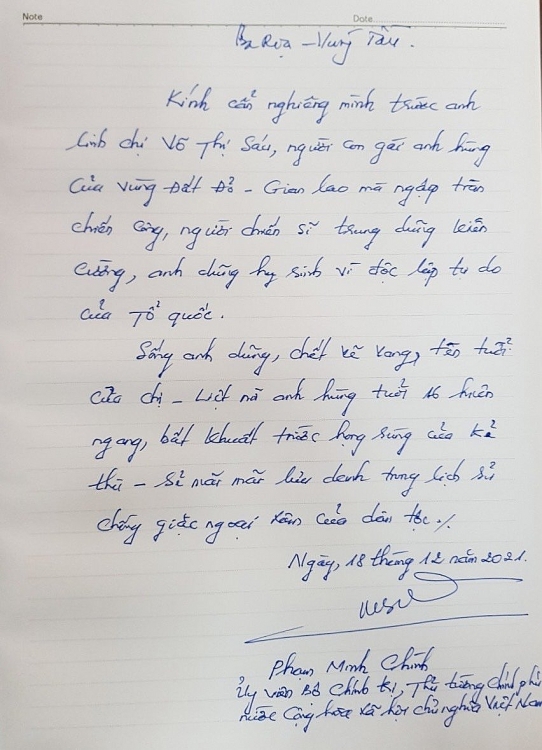 Note Date
Bà Rịa - Vũng Tàu.
Kính cẩn nghiêng mình trước anh
linh chị Võ Thị Sáu, người con gái anh hùng
của vùng Đất Đỏ - Gian lao mà ngập tràn
chiến công, người chiến sĩ trung dũng kiên
cường, anh dũng hy sinh vì độc lập tự do
của Tổ quốc.
Sống anh dũng, chết vẻ vang, tên tuổi
của chị - Liệt nữ anh hùng tuổi 16 hiên
ngang, bất khuất trước họng súng của kẻ
thù - sẽ mãi mãi lưu danh trong lịch sử
chống giặc ngoại xâm của dân tộc./.
Ngày, 18 tháng 12 năm 2021.
Phạm Minh Chính
Ủy viên Bộ Chính trị, Thủ tướng Chính phủ
nước Cộng hòa xã hội chủ nghĩa Việt Nam